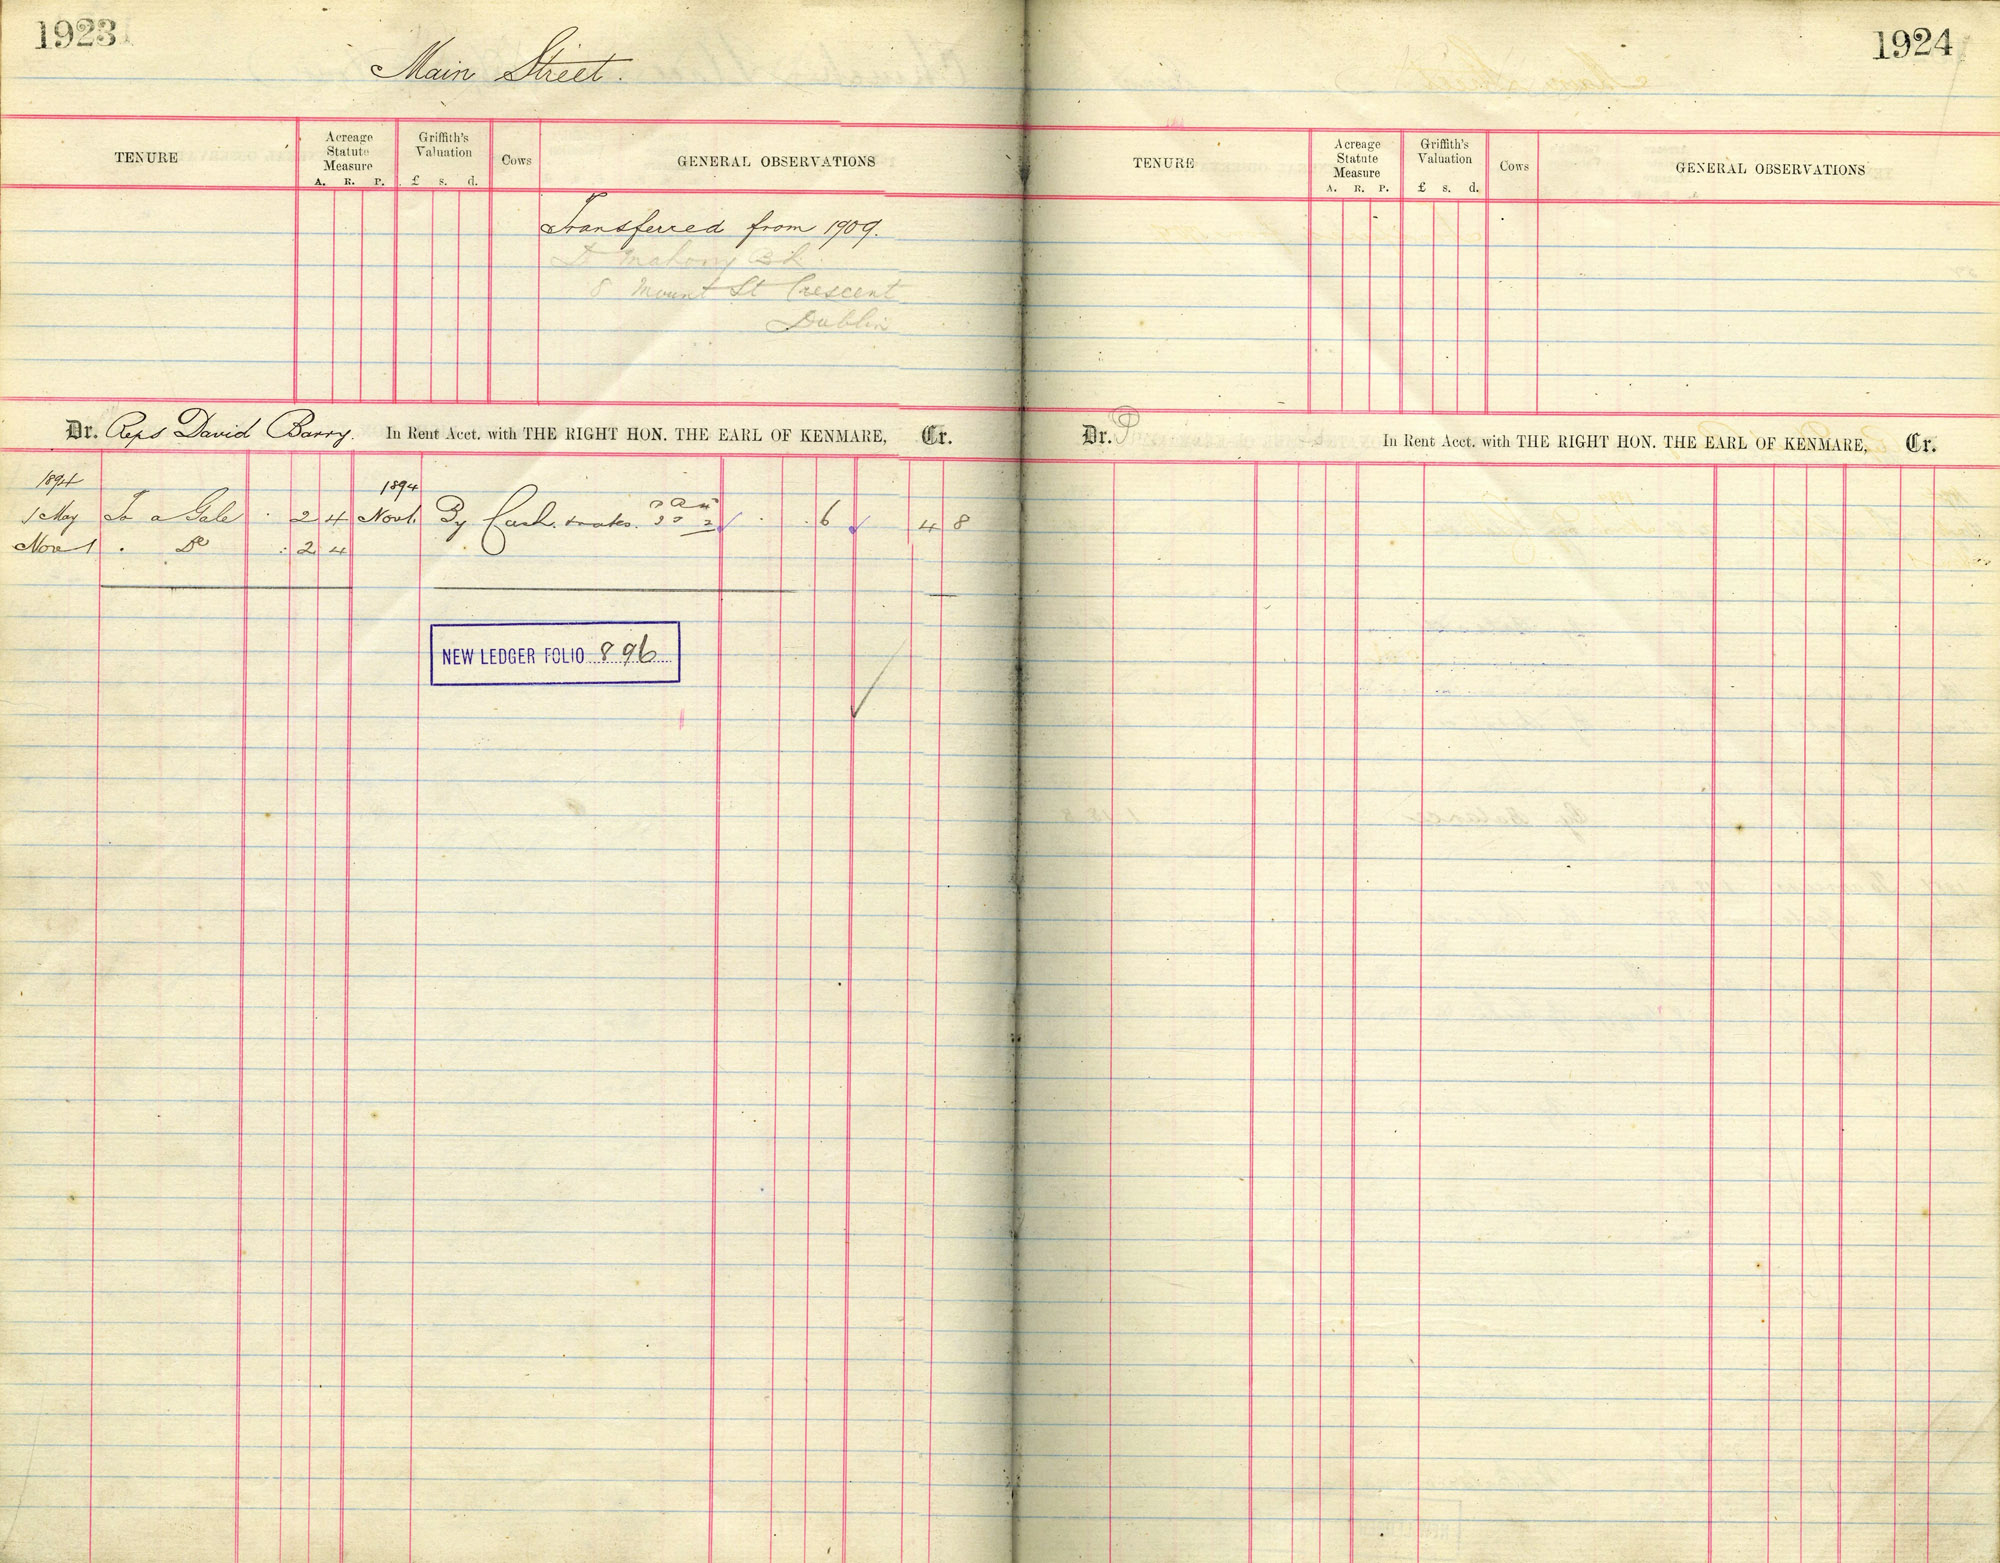 1923
Main Street.
TENURE
Acreage Statute Measure
A. R. P.
Griffith's Valuation
£ s. d.
Cows
GENERAL OBSERVATIONS
Transferred from 1909.
Mahony
8 Mount St Crescent
Dublin
Dr. Reps David Barry. In Rent Acct. with THE RIGHT HON. THE EARL OF KENMARE, Cr.
1894 1894
1 May To a Gale 2 4 Nov 1. By Cash 6 4 8
Nov 1 . Do 2 4
NEW LEDGER FOLIO 896
1924
TENURE
Acreage Statute Measure
A. R. P.
Griffith's Valuation
£ s. d.
Cows
GENERAL OBSERVATIONS
Dr. In Rent Acct. with THE RIGHT HON. THE EARL OF KENMARE, Cr.